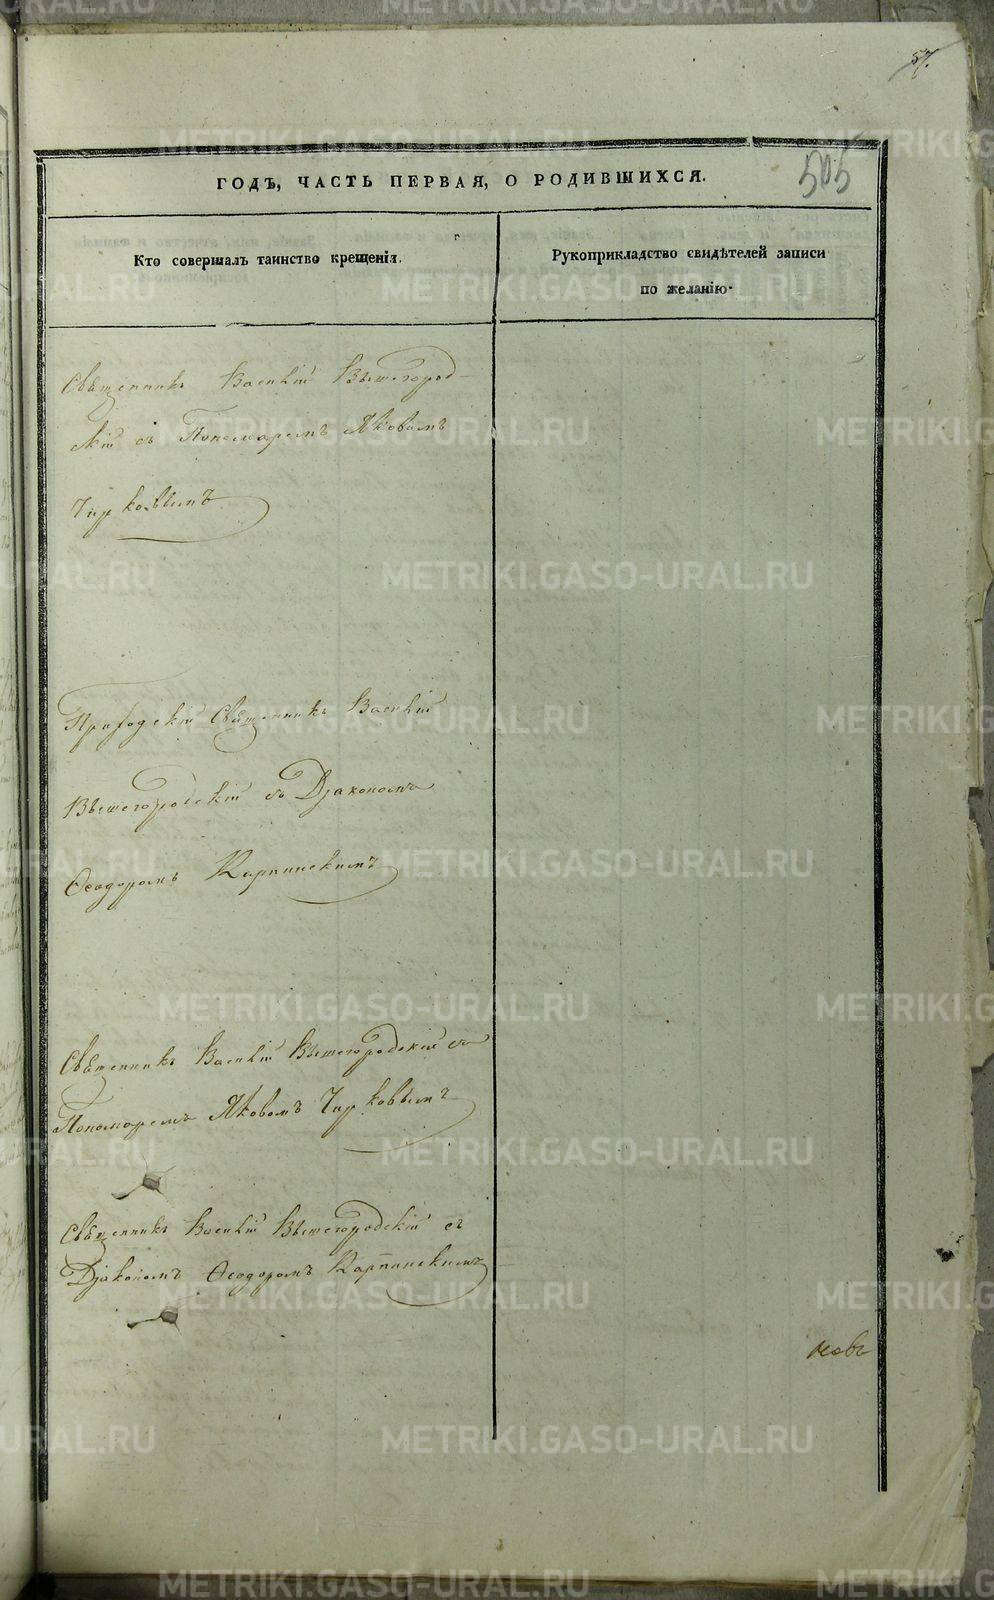 57.
505
ГОДЪ, ЧАСТЬ ПЕРВАЯ, О РОДИВШИХСЯ.
Кто совершалъ таинство крещенія.
Рукоприкладство свидѣтелей записи
по желанію.
Священникъ Василій Вышегород-
скій съ Пономаремъ Яковомъ
Чирковымъ
Приходскій Священникъ Василій
Вышегородскій съ Діакономъ
Ѳеодоромъ Карпинскимъ
Священникъ Василій Вышегородскій съ
Пономаремъ Яковомъ Чирковымъ
Священникъ Василій Вышегородскій съ
Діакономъ Ѳеодоромъ Карпинскимъ
METRIKI.GASO-URAL.RU